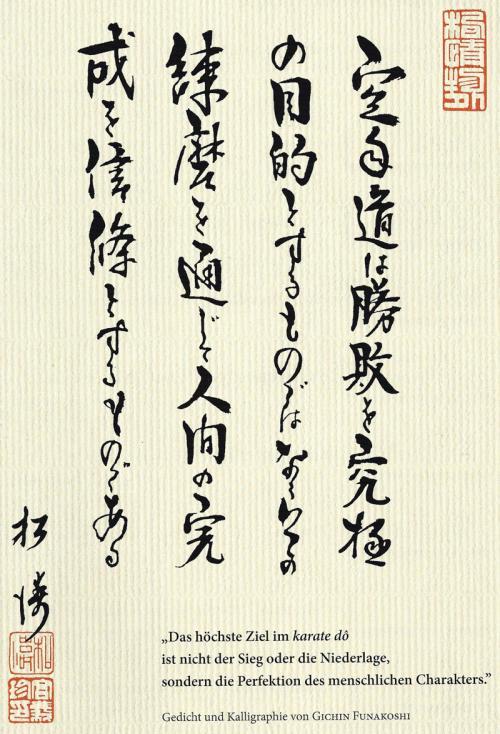 空手道は勝敗を究極
の目的とするものではなく
練磨を通じて人間の完
成を信條とするものである
松濤
„Das höchste Ziel im karate dô
ist nicht der Sieg oder die Niederlage,
sondern die Perfektion des menschlichen Charakters.”
Gedicht und Kalligraphie von GICHIN FUNAKOSHI